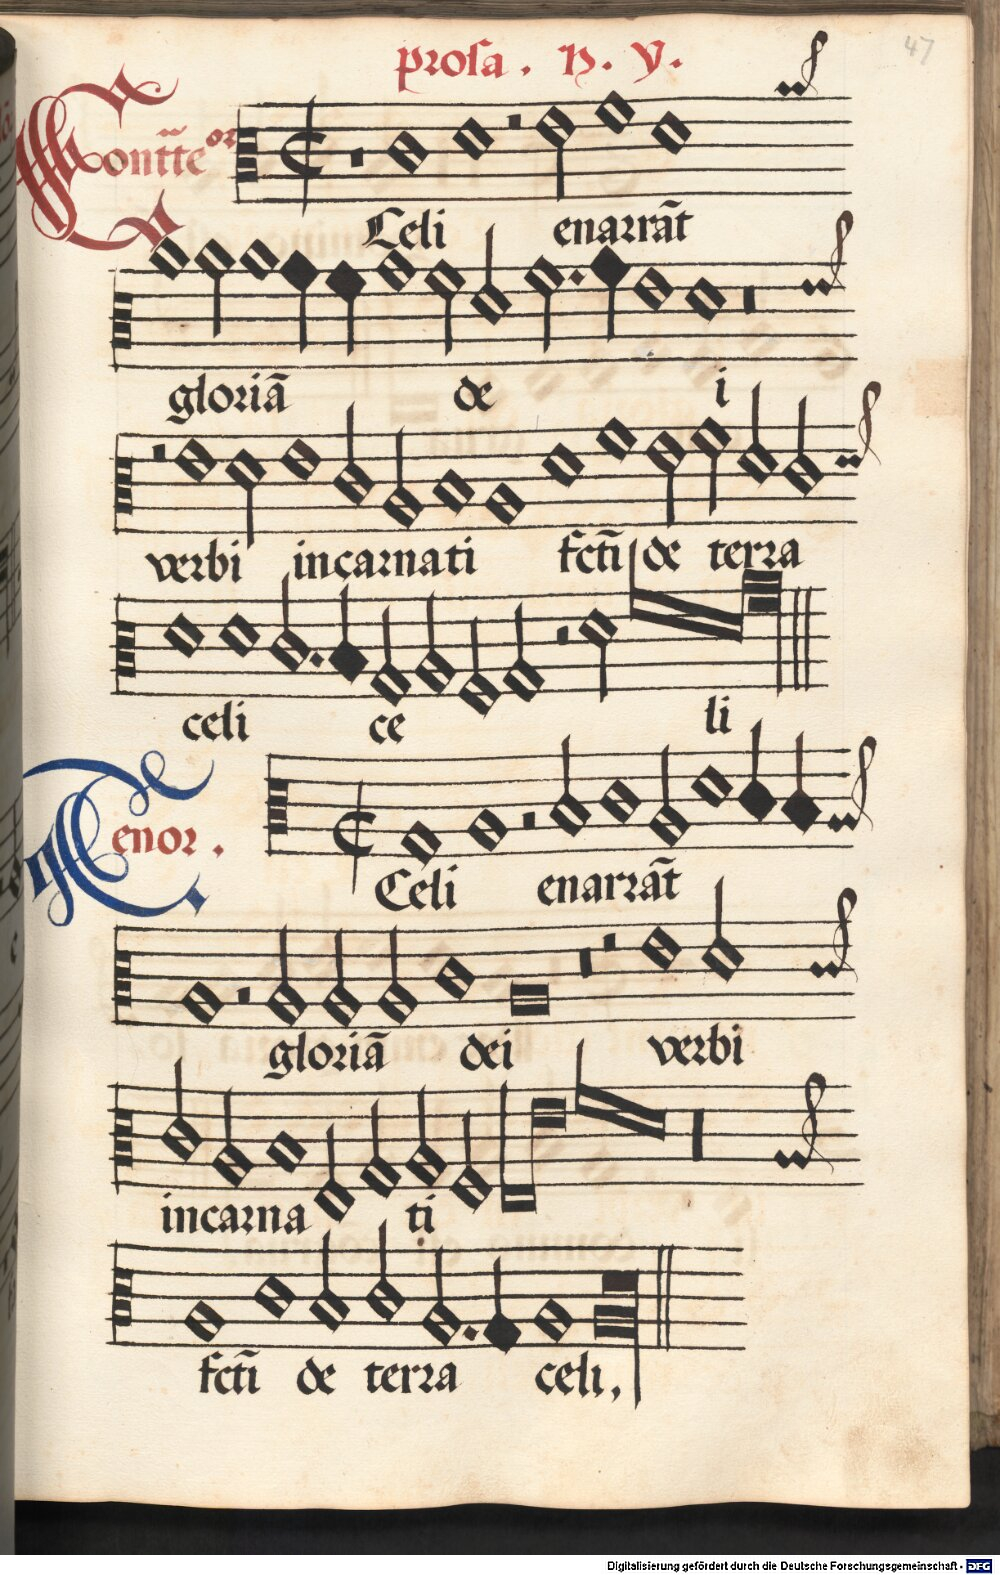 prosa . H. y.
47
Conttᵉor
Celi enarrāt
gloriā de i
verbi incarnati fcti̅ de terra
celi ce li
Tenor .
Celi enarrāt
gloriā dei verbi
incarna ti
fcti̅ de terra celi,
Digitalisierung gefördert durch die Deutsche Forschungsgemeinschaft - DFG